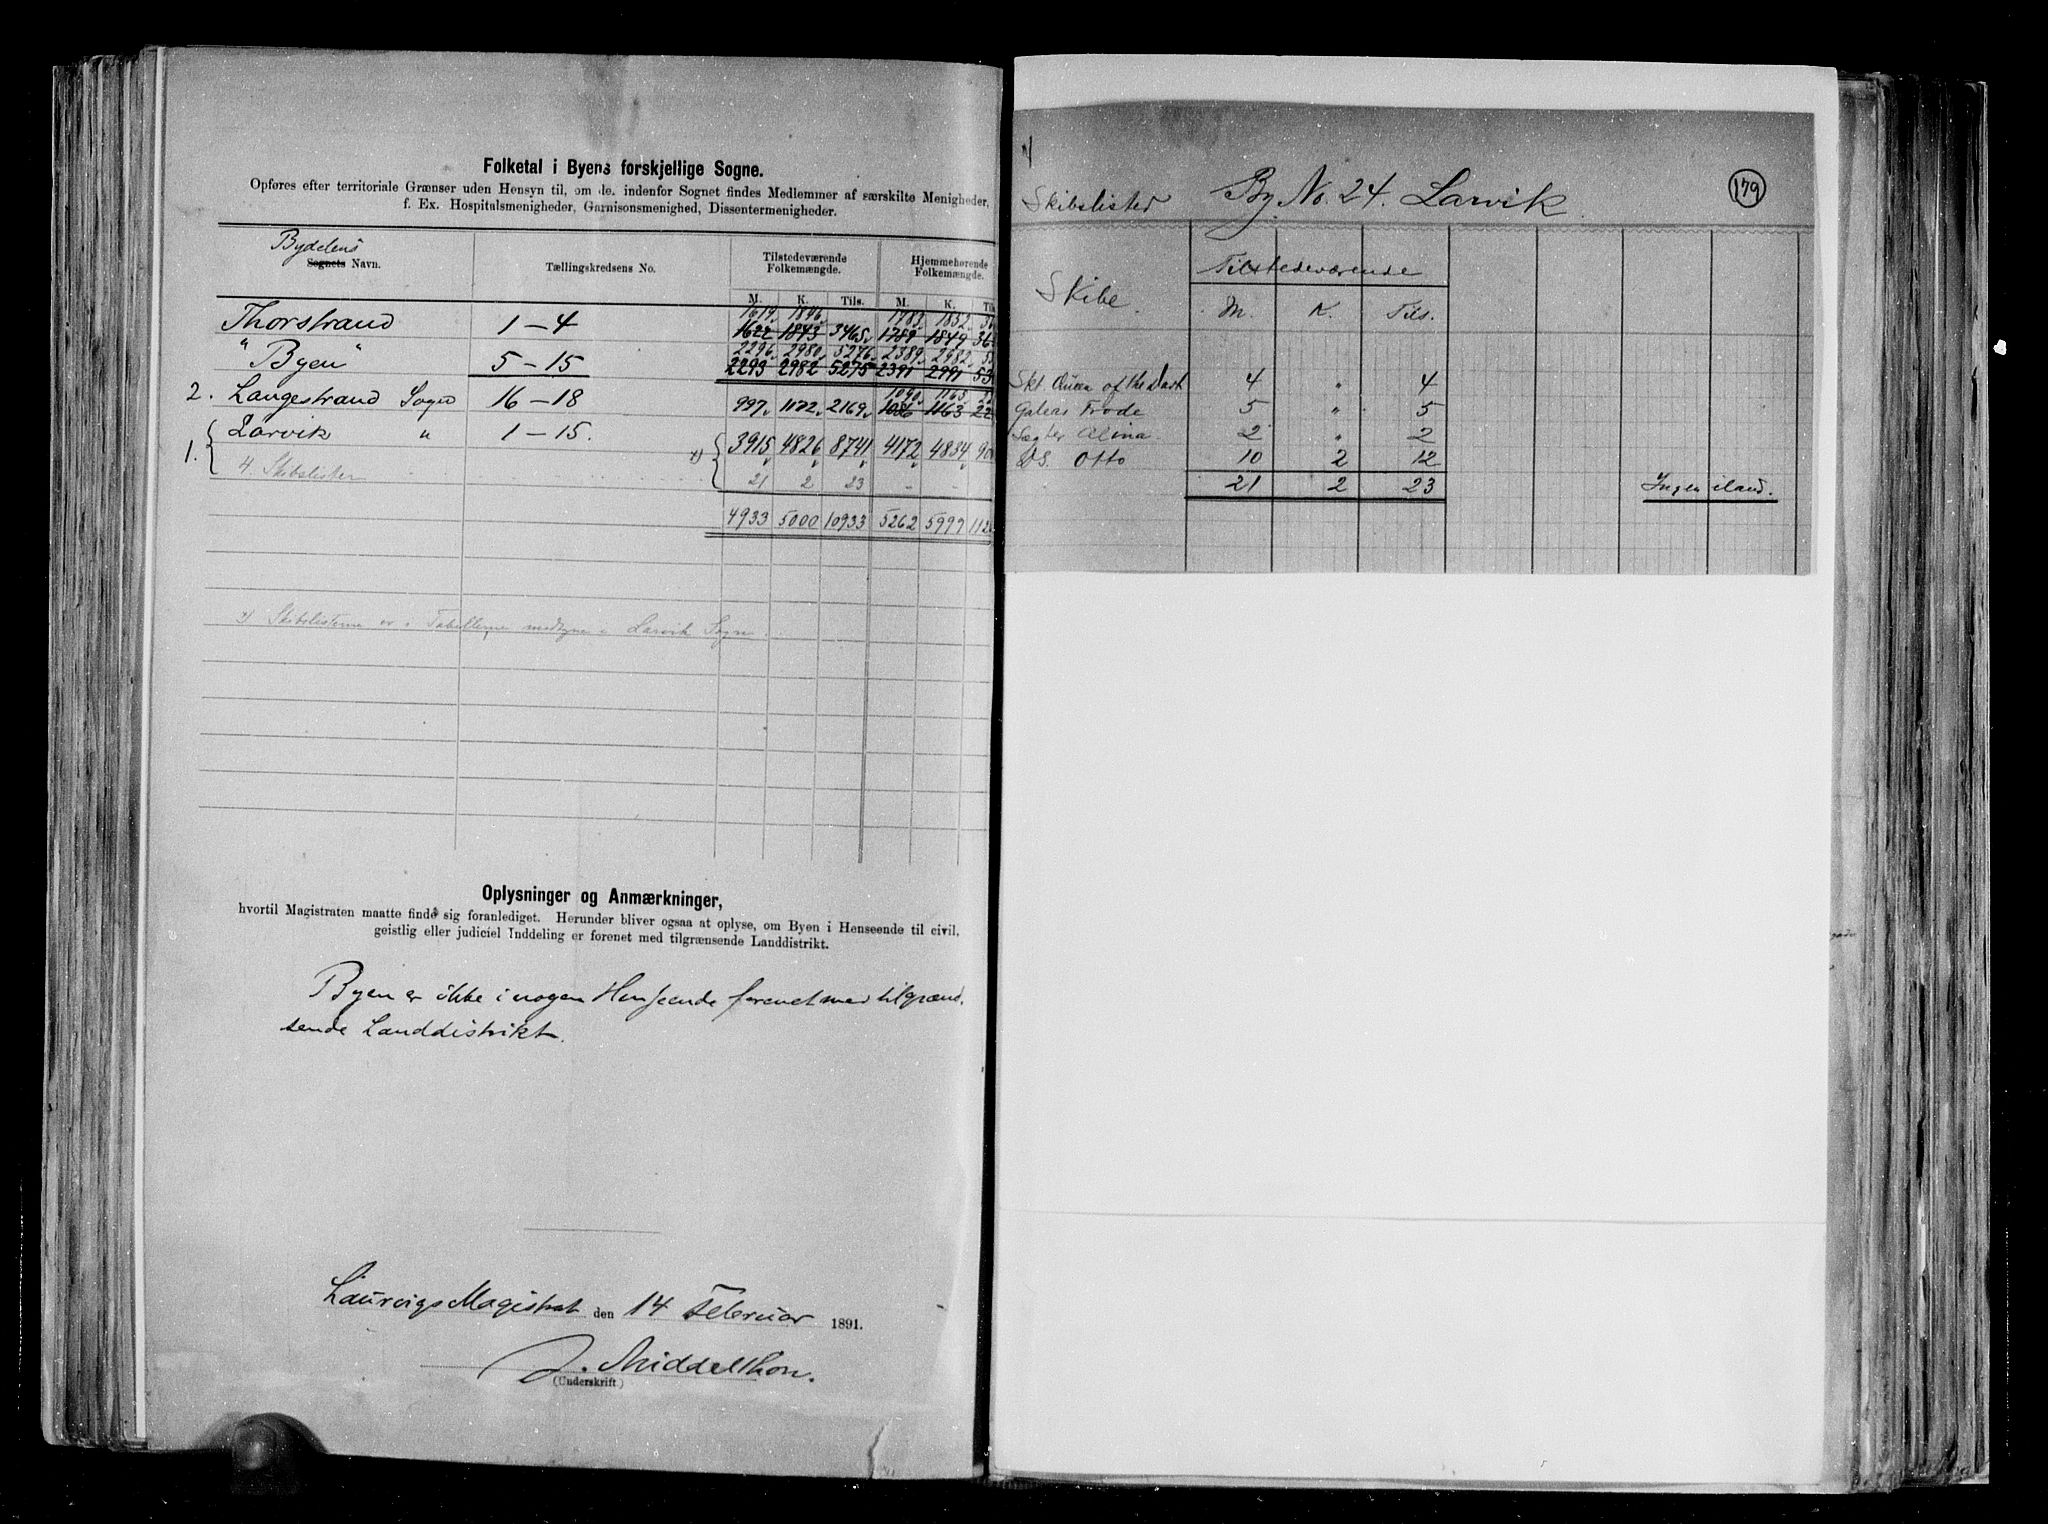 Folketal i Byens forskjellige Sogne.
Opføres efter territoriale Grænser uden Hensyn til, om de indenfor Sognet findes Medlemmer af særskilte Menigheder,
f. Ex. Hospitalsmenigheder, Garnisonsmenighed, Dissentermenigheder.
Bydelens
Sognets Navn. Tællingskredsens No. Tilstedeværende Folkemængde. Hjemmehørende Folkemængde.
M. K. Tils. M. K. Til
1619 1846 1783 1852
Thorstrand 1-4 1622 1843 3465 1789 1849 36
2296 2980 5276 2389 2982
"Byen" 5-15 2293 2982 5275 2391 2991 53
1090 1165
2. Langestrand Sogn 16-18 997 1172 2169 1086 1163 22
1. Larvik " 1-15. 3915 4826 8741 4172 4834 90
4. Skibslister 21 2 23 - -
4933 5000 10933 5262 5999 112
Skibslisterne er i Tabellerne medtagne i Larvik Sogn.
Oplysninger og Anmærkninger,
hvortil Magistraten maatte finde sig foranlediget. Herunder bliver ogsaa at oplyse, om Byen i Henseende til civil,
geistlig eller judiciel Inddeling er forenet med tilgrænsende Landdistrikt.
Byen er ikke i nogen Henseende forenet med tilgræn-
sende Landdistrikt.
Laurvigs Magistrat den 14 Februar 1891.
J. Middelthon.
(Underskrift)
Skibslister By No. 24. Larvik 179
Tilstedeværende
Skibe. M. K. Tils.
Skt Queen of the 4 " 4
Galeas Frode 5 " 5
Alina 2 " 2
DS. Otto 10 2 12
21 2 23 Ingen iland.